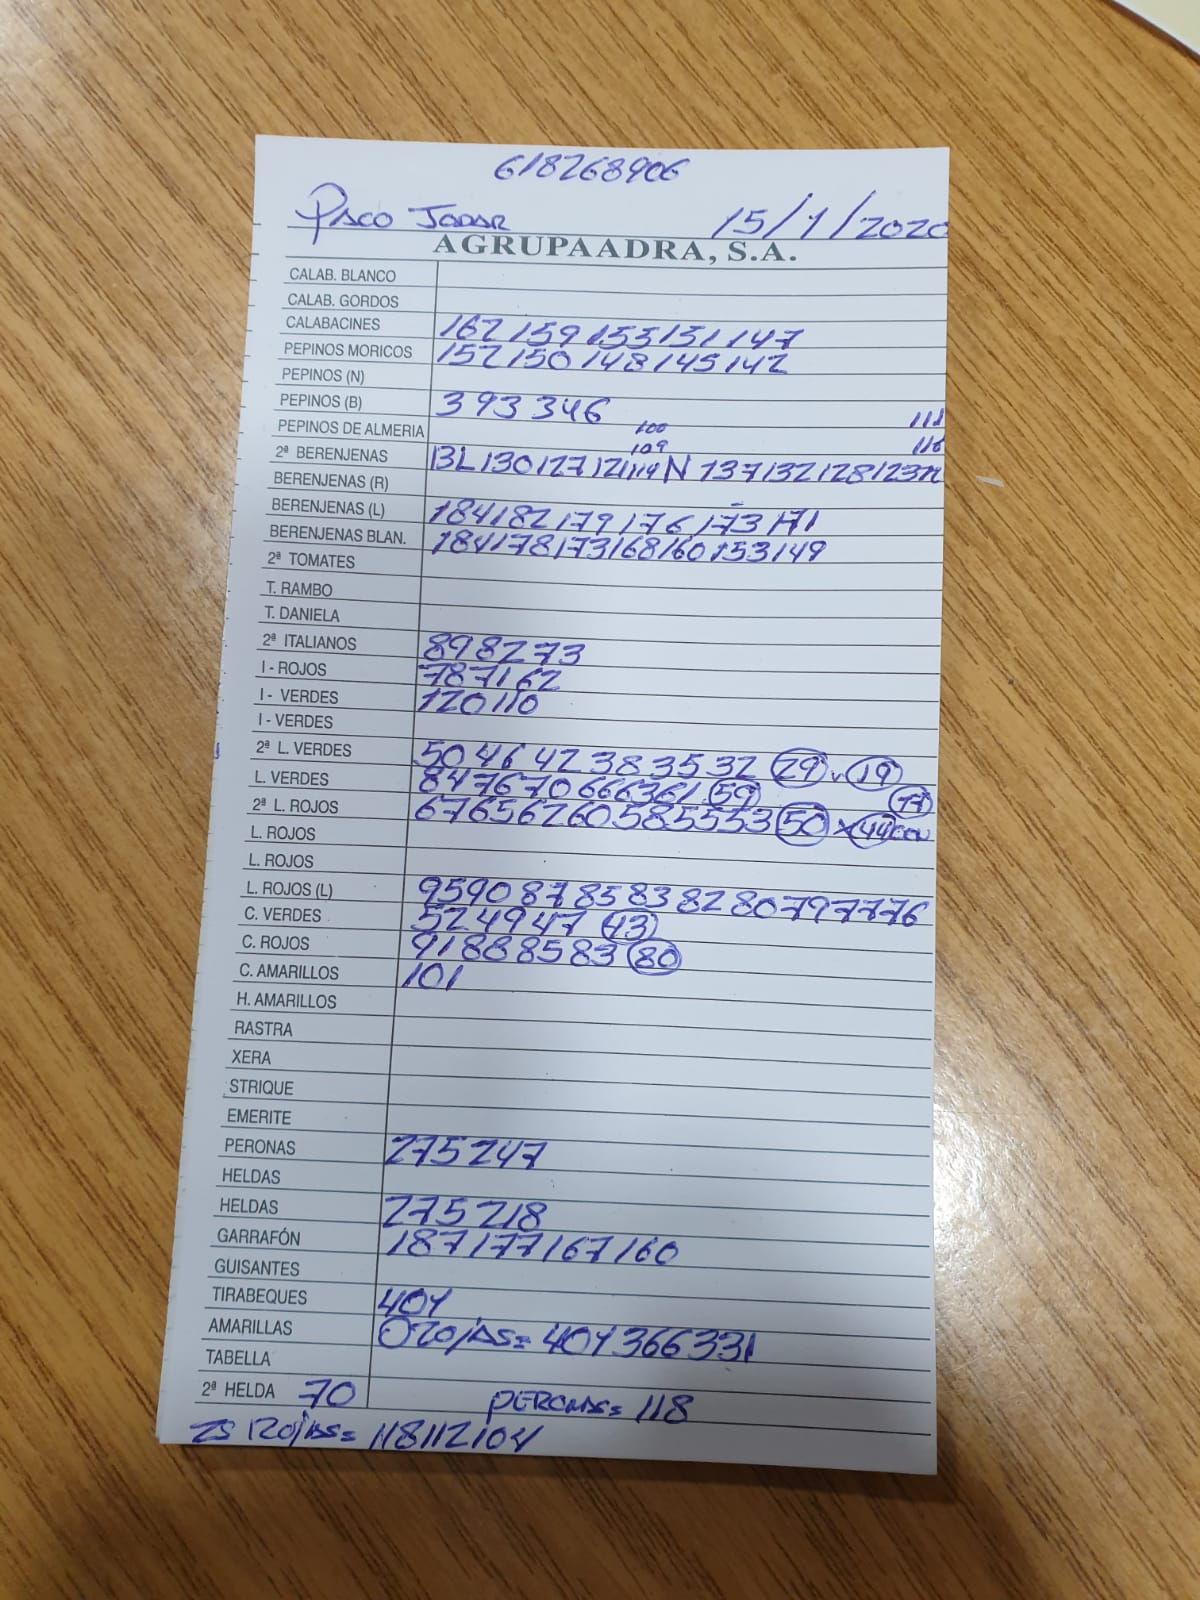 618268906
Paco Jodar 15/1/2020
AGRUPAADRA, S.A.
CALAB. BLANCO
CALAB. GORDOS
CALABACINES 162 159 155 151 147
PEPINOS MORICOS 152 150 148 145 142
PEPINOS (N)
PEPINOS (B) 393 346
PEPINOS DE ALMERIA 100 111
109 116
2ª BERENJENAS 13L 130 127 121 114 N 137 132 128 123 N
BERENJENAS (R)
BERENJENAS (L) 184 182 179 176 173 171
BERENJENAS BLAN. 184 178 173 168 160 153 149
2ª TOMATES
T. RAMBO
T. DANIELA
2ª ITALIANOS 89 82 73
I - ROJOS 78 71 62
I - VERDES 120 110
I - VERDES
2ª L. VERDES 50 46 42 38 35 32 29 19
L. VERDES 84 76 70 66 63 61 59 77
2ª L. ROJOS 67 65 62 60 58 55 53 50 x 44 CON
L. ROJOS
L. ROJOS
L. ROJOS (L) 95 90 87 85 83 82 80 79 77 76
C. VERDES 52 49 47 43
C. ROJOS 91 88 85 83 80
C. AMARILLOS 101
H. AMARILLOS
RASTRA
XERA
STRIQUE
EMERITE
PERONAS 275 247
HELDAS
HELDAS 275 218
GARRAFÓN 187 177 167 160
GUISANTES
TIRABEQUES 404
AMARILLAS Rojas= 404 366 331
TABELLA
2ª HELDA 70 PERONAS= 118
ZS Rojas= 118 112 104